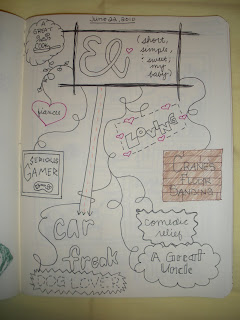 June 22, 2010
A
GREAT
El
(short,
simple,
sweet,
my
baby)
fiancée
LOVING
A SERIOUS
GAMER
CRANE'S
FLOUR
DANDING
car
freak
comedic
relief
A Great
Uncle
DOG LOVER